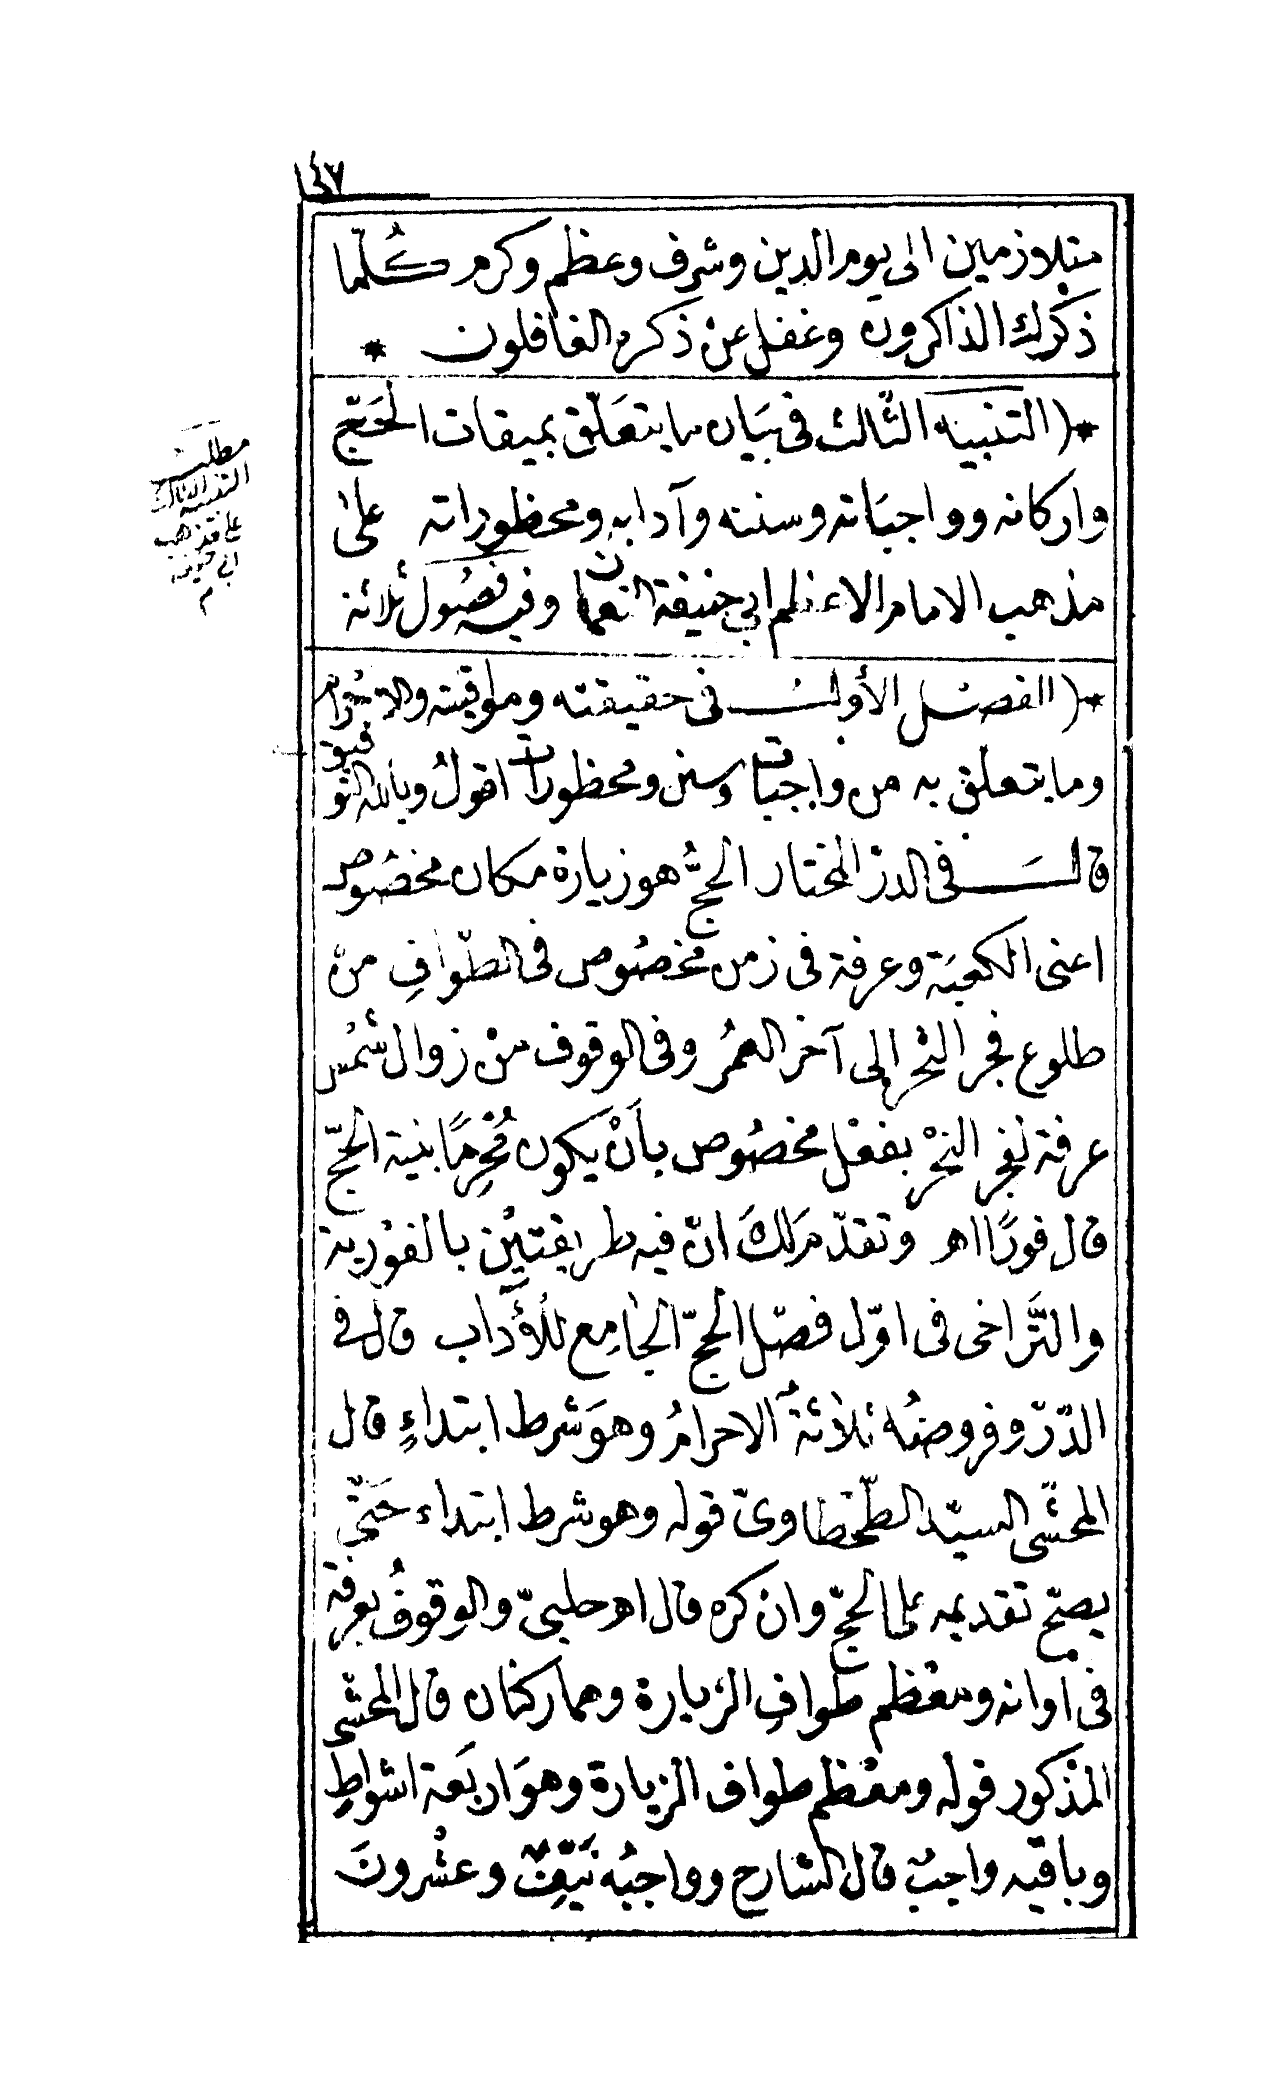 ١٤٧
متلازمين الى يوم الدين وشرف وعظم وكرم كُلّما
ذكرك الذاكرون وغفل عن ذكرم الغافلون *
*( التنبيه الثّالث فى بيَان ما يتعَلّق بميقات الحَجّ
واركانه وواجبَاته وسننه وآدابه ومحظوراته علىٰ
مذهب الامام الاعظم ابى حنيفة النعمان وفيه فصُول ثلاثة
مطلب
التنبيه الثالث
على مذهب
ابى حنيفة
م
*( الفصْل الأول فى حقيقته ومواقيته والاحرام
وما يتعلق به من واجبات وسنن ومحظورات اقولُ وبالله التوفيق
قالَ فى الدرّ المختار الحجُّ هو زيارة مكان مخصُوص
اعنى الكعبَة وعرفة فى زمن مخصُوص فى الطّوافِ منْ
طلوع فجر النحْر إلى آخر العمُر وفى الوقوف منْ زوال شمُس
عرفة لفجر النحْر بفعْل مخصُوص بأنْ يكون مُحْرِمًا بنية الحجّ
قال فورًا اهـ وتقدّم لكَ انّ فيه طريقتيْن بالفوْرية
والتَّراخى فى اوّل فصْل الحجّ الجامِع للأداب قال فى
الدّرّ وفروضُه ثلاثةٌ الاحرامُ وهوَ شرط ابتداءٍ قال
المحشّى السيّد الطّحطاوىّ قوله وهو شرط ابتداء حَتّى
يصحّ تقديمه على الحجّ وان كره قال اهـ حلبىّ والوقوفُ بعرفة
فى اوانه ومعْظم طوافِ الزيارة وهما ركنان قال المحشّى
المذْكور قوله ومعْظم طواف الزيارة وهوَ اربَعة اشواطٍ
وباقيه واجبٌ قال الشارح وواجبُه نَيّفٌ وعشْرونَ